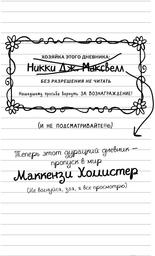 ХОЗЯЙКА ЭТОГО ДНЕВНИКА:
Никки Дж. Максвелл
БЕЗ РАЗРЕШЕНИЯ НЕ ЧИТАТЬ
Нашедшему просьба вернуть ЗА ВОЗНАГРАЖДЕНИЕ!
(И НЕ ПОДСМАТРИВАЙТЕ!!☺)
Теперь этот дурацкий дневник –
пропуск в мир
Маккензи Холлистер
(Не волнуйся, зая, я все просмотрю)